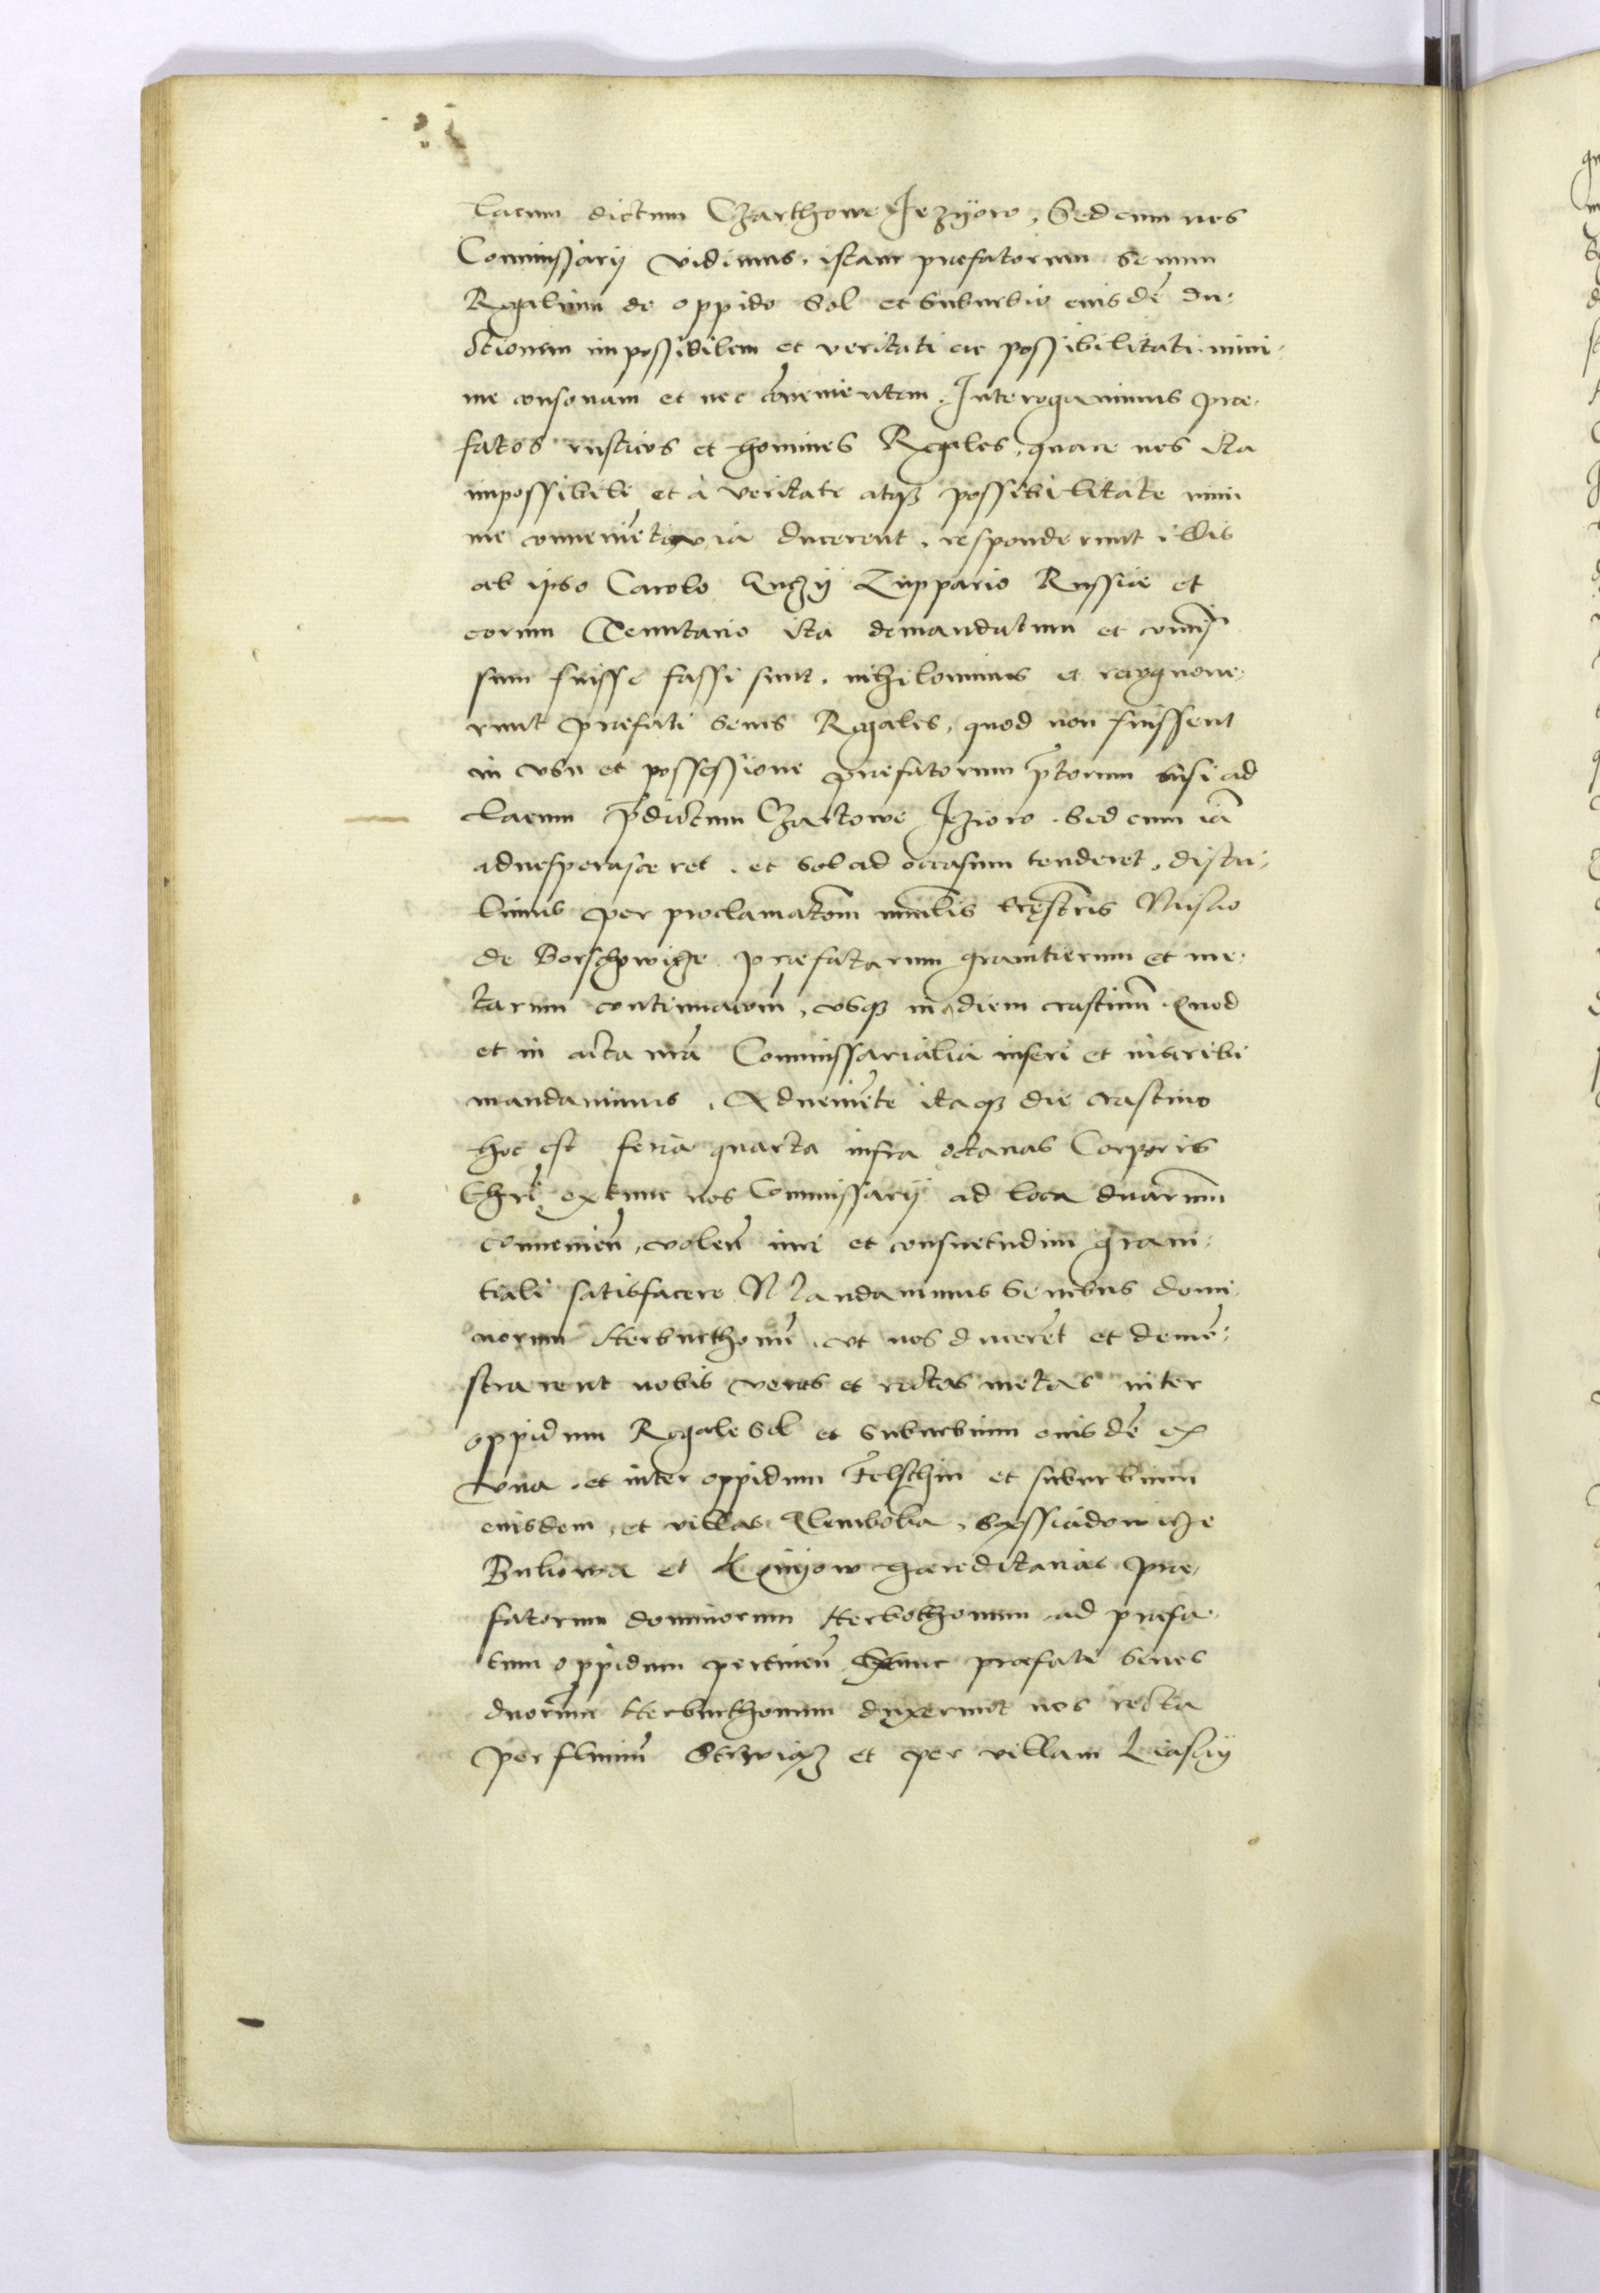 lacum dictum Czarthowe Jezyoro, Sed cum nos
Commissarij vidimus, istam prefatorum senum
Regalium de oppido Sol et suburbio eiusdē du-
ctionem impossibilem et veritati ac possibilitati mini-
me consonam et nec cōuenientem. Interogauimus prae-
fatos rusticos et homines Regales, quare nos ita
impossibili et a veritate atqȝ possibilitate mini
me conueniētj via ducerent, responderunt illis
ab ipso Carolo Zuppario Russiae et
eorum Tenutario ita demandatum et comīs
sum fuisse fassi sunt, nihilominus et recognoue-
runt prefati senes Regales, quod non fuissent
in vsu et possessione prefatorum p̄torum nisi ad
lacum p̄dictum Czartowe Jezioro. Sed cum iā
aduesperasceret, et sol ad occasum tenderet, distu-
limus per proclamatōm mīnlis trēstris Nisio
de Borschowicze praefatarum granitierum et me-
tarum continuatiōm, vsqȝ in diem crastinū. Quod
et in acta nrā Commissarialia inseri et inscribi
mandauimus. Adueniēte itaqȝ die crastino
hoc est feria quarta infra octauas Corporis
Chrī, ex tunc nos Commissarij ad loca duarum
conuenieñ, voleñ iuri et consuetudini grani-
tiali satisfacere Mandauimus senibus domi
norum Herburthonū, vt nos ducerēt et demō-
strarent nobis veras et rectas metas inter
oppidum Regale Sol et suburbium eiusdē ex
vna, et inter oppidum Felschin et suburbium
eiusdem, et villas
et haereditarias prae-
fatorum dominorum Herborthonum ad praefa-
tum oppidum pertineñ. Hunc praefati senes
duorum Herburthonum duxerunt nos recta
per fluuiū Strwiąż et per villam